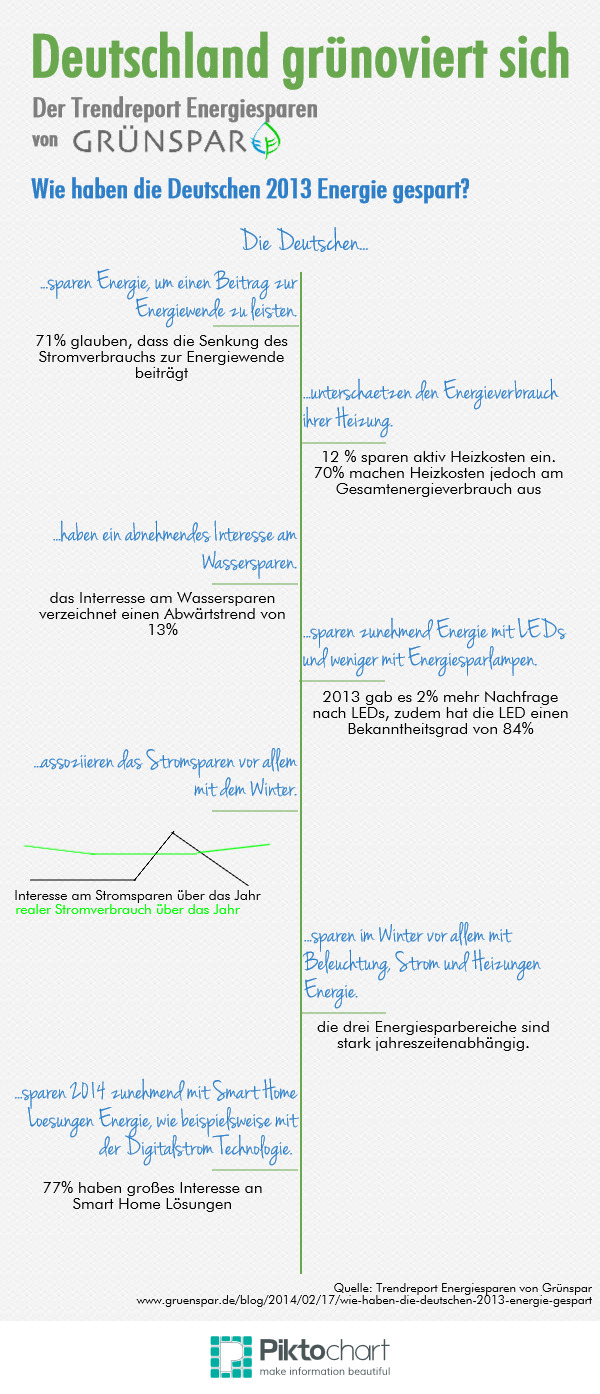 Deutschland grünoviert sich
Der Trendreport Energiesparen
von GRÜNSPAR
Wie haben die Deutschen 2013 Energie gespart?
Die Deutschen...
...sparen Energie, um einen Beitrag zur
Energiewende zu leisten.
71% glauben, dass die Senkung des
Stromverbrauchs zur Energiewende
beiträgt
...unterschaetzen den Energieverbrauch
ihrer Heizung.
12 % sparen aktiv Heizkosten ein.
70% machen Heizkosten jedoch am
Gesamtenergieverbrauch aus
...haben ein abnehmendes Interesse am
Wassersparen.
das Interresse am Wassersparen
verzeichnet einen Abwärtstrend von
13%
...sparen zunehmend Energie mit LEDs
und weniger mit Energiesparlampen.
2013 gab es 2% mehr Nachfrage
nach LEDs, zudem hat die LED einen
Bekanntheitsgrad von 84%
...assoziieren das Stromsparen vor allem
mit dem Winter.
Interesse am Stromsparen über das Jahr
realer Stromverbrauch über das Jahr
...sparen im Winter vor allem mit
Beleuchtung, Strom und Heizungen
Energie.
die drei Energiesparbereiche sind
stark jahreszeitenabhängig.
...sparen 2014 zunehmend mit Smart Home
Loesungen Energie, wie beispielsweise mit
der Digitalstrom Technologie.
77% haben großes Interesse an
Smart Home Lösungen
Quelle: Trendreport Energiesparen von Grünspar
www.gruenspar.de/blog/2014/02/17/wie-haben-die-deutschen-2013-energie-gespart
Piktochart
make information beautiful